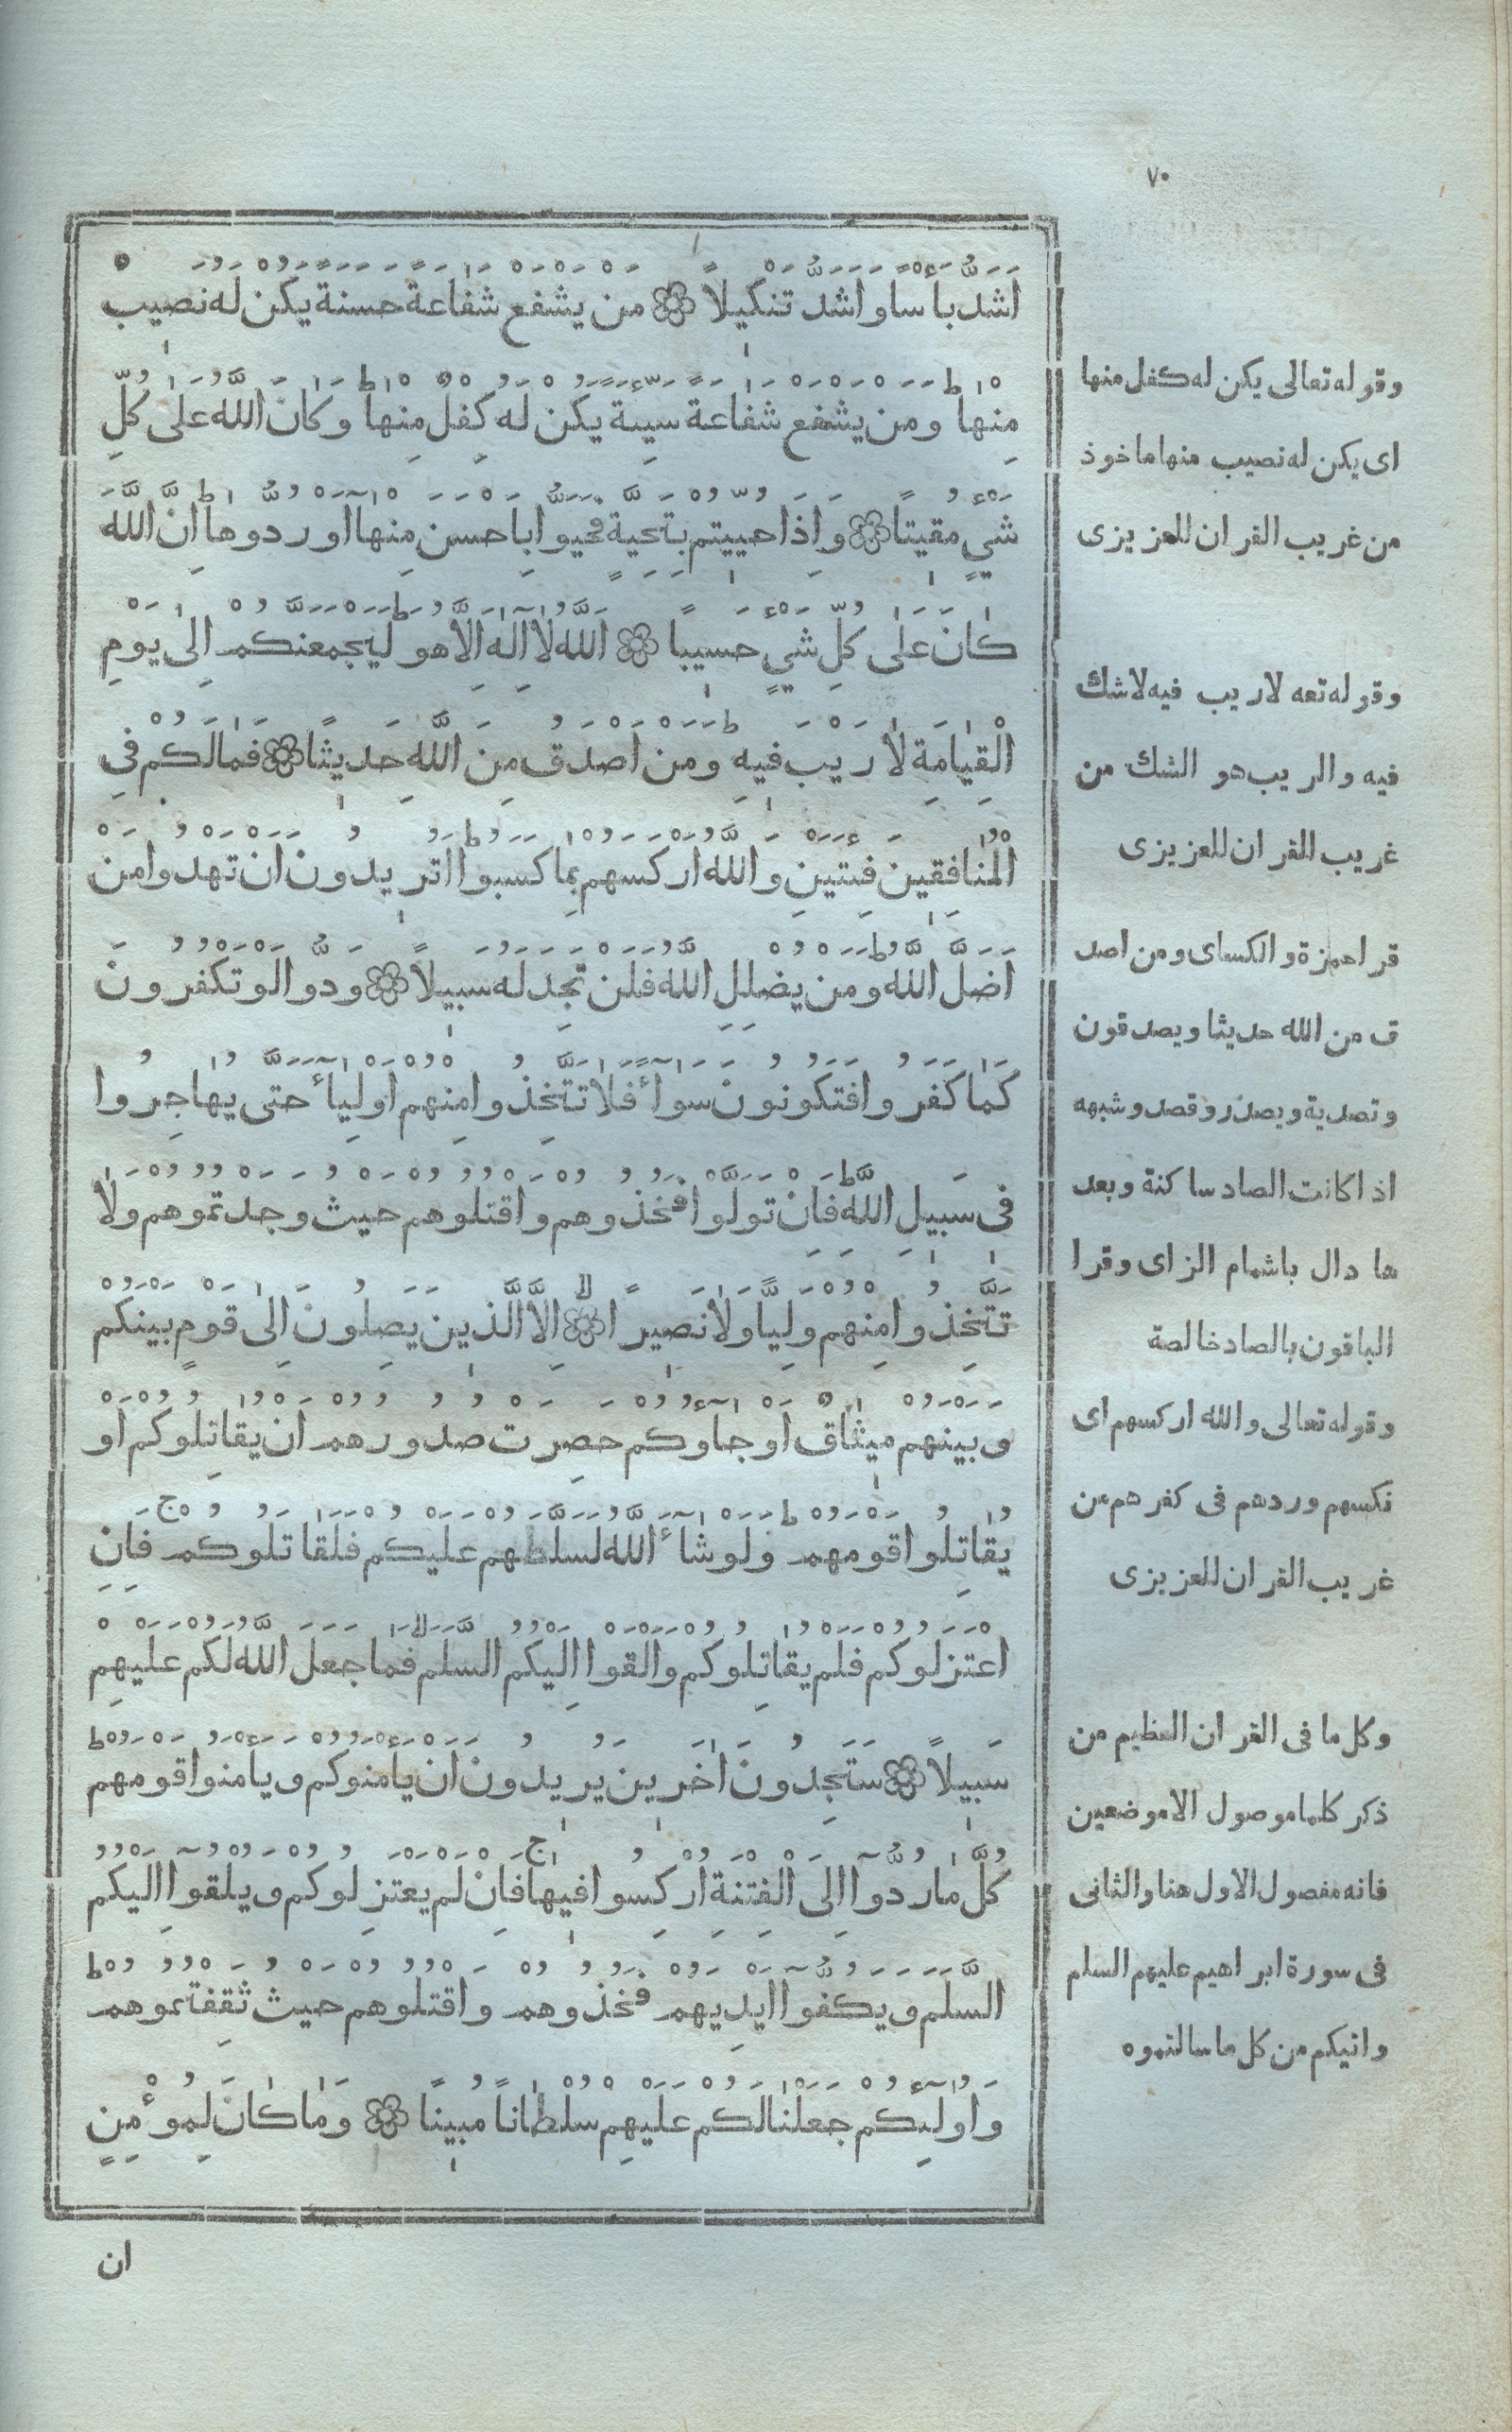 ٧٠
اَشَدُّ بَأْسًا وَاَشَدُّ تَنْكِيلًا من يَشْفَعْ شَفَاعَةً حَسَنَةً يَكُنْ لَهُ نَصِيبٌ
مِنْهَا ط وَمَنْ يَشْفَعْ شَفَاعَةً سَيِّئَةً يَكُنْ لَهُ كِفْلٌ مِنْهَا ط وَكَانَ اللَّهُ عَلَى كُلِّ
شَيْءٍ مُقِيتًا وَاِذَا حُيِّيتُمْ بِتَحِيَّةٍ فَحَيُّوا بِاَحْسَنَ مِنْهَا اَوْ رُدُّوهَا ط اِنَّ اللَّهَ
كَانَ عَلَى كُلِّ شَيْءٍ حَسِيبًا اَللَّهُ لَا اِلَهَ اِلَّا هُوَ ط لَيَجْمَعَنَّكُمْ اِلَى يَوْمِ
الْقِيَامَةِ لَا رَيْبَ فِيهِ ط وَمَنْ اَصْدَقُ مِنَ اللَّهِ حَدِيثًا فَمَا لَكُمْ فِي
الْمُنَافِقِينَ فِئَتَيْنِ وَاللَّهُ اَرْكَسَهُمْ بِمَا كَسَبُوا ط اَتُرِيدُونَ اَنْ تَهْدُوا مَنْ
اَضَلَّ اللَّهُ ط وَمَنْ يُضْلِلِ اللَّهُ فَلَنْ تَجِدَ لَهُ سَبِيلًا وَدُّوا لَوْ تَكْفُرُونَ
كَمَا كَفَرُوا فَتَكُونُونَ سَوَآءً فَلَا تَتَّخِذُوا مِنْهُمْ اَوْلِيَآءَ حَتَّى يُهَاجِرُوا
فِي سَبِيلِ اللَّهِ ط فَاِنْ تَوَلَّوْا فَخُذُوهُمْ وَاقْتُلُوهُمْ حَيْثُ وَجَدْتُمُوهُمْ وَلَا
تَتَّخِذُوا مِنْهُمْ وَلِيًّا وَلَا نَصِيرًا لا اِلَّا الَّذِينَ يَصِلُونَ اِلَى قَوْمٍ بَيْنَكُمْ
وَبَيْنَهُمْ مِيثَاقٌ اَوْ جَآؤُكُمْ حَصِرَتْ صُدُورُهُمْ اَنْ يُقَاتِلُوكُمْ اَوْ
يُقَاتِلُوا قَوْمَهُمْ ط وَلَوْ شَآءَ اللَّهُ لَسَلَّطَهُمْ عَلَيْكُمْ فَلَقَاتَلُوكُمْ ج فَاِنِ
اعْتَزَلُوكُمْ فَلَمْ يُقَاتِلُوكُمْ وَاَلْقَوْا اِلَيْكُمُ السَّلَمَ لا فَمَا جَعَلَ اللَّهُ لَكُمْ عَلَيْهِمْ
سَبِيلًا سَتَجِدُونَ اٰخَرِينَ يُرِيدُونَ اَنْ يَأْمَنُوكُمْ وَيَأْمَنُوا قَوْمَهُمْ ط
كُلَّ مَا رُدُّوٓا اِلَى الْفِتْنَةِ اُرْكِسُوا فِيهَا ج فَاِنْ لَمْ يَعْتَزِلُوكُمْ وَيُلْقُوٓا اِلَيْكُمُ
السَّلَمَ وَيَكُفُّوٓا اَيْدِيَهُمْ فَخُذُوهُمْ وَاقْتُلُوهُمْ حَيْثُ ثَقِفْتُمُوهُمْ ط
وَاُولٰٓئِكُمْ جَعَلْنَا لَكُمْ عَلَيْهِمْ سُلْطَانًا مُبِينًا وَمَا كَانَ لِمُوءْمِنٍ
ان
وقوله تعالى يكن له كفل منها
اى يكن له نصيب منها ماخوذ
من غريب القران للعزيزى
وقوله تعه لاريب فيه لاشك
فيه والريب هو الشك من
غريب القران للعزيزى
قرا حمزة والكساى ومن اصد
ق من الله حديثا ويصدقون
وتصدية ويصدر وقصد وشبهه
اذا كانت الصاد ساكنة وبعد
ها دال باشمام الزاى وقرا
الباقون بالصاد خالصة
وقوله تعالى والله اركسهم اى
نكسهم وردهم فى كفرهم من
غريب القران للعزيزى
وكل ما فى القران العظيم من
ذكر كلما موصول الا موضعين
فانه مفصول الاول هنا والثانى
فى سورة ابراهيم عليهم السلم
واتيكم من كل ما سالتموه